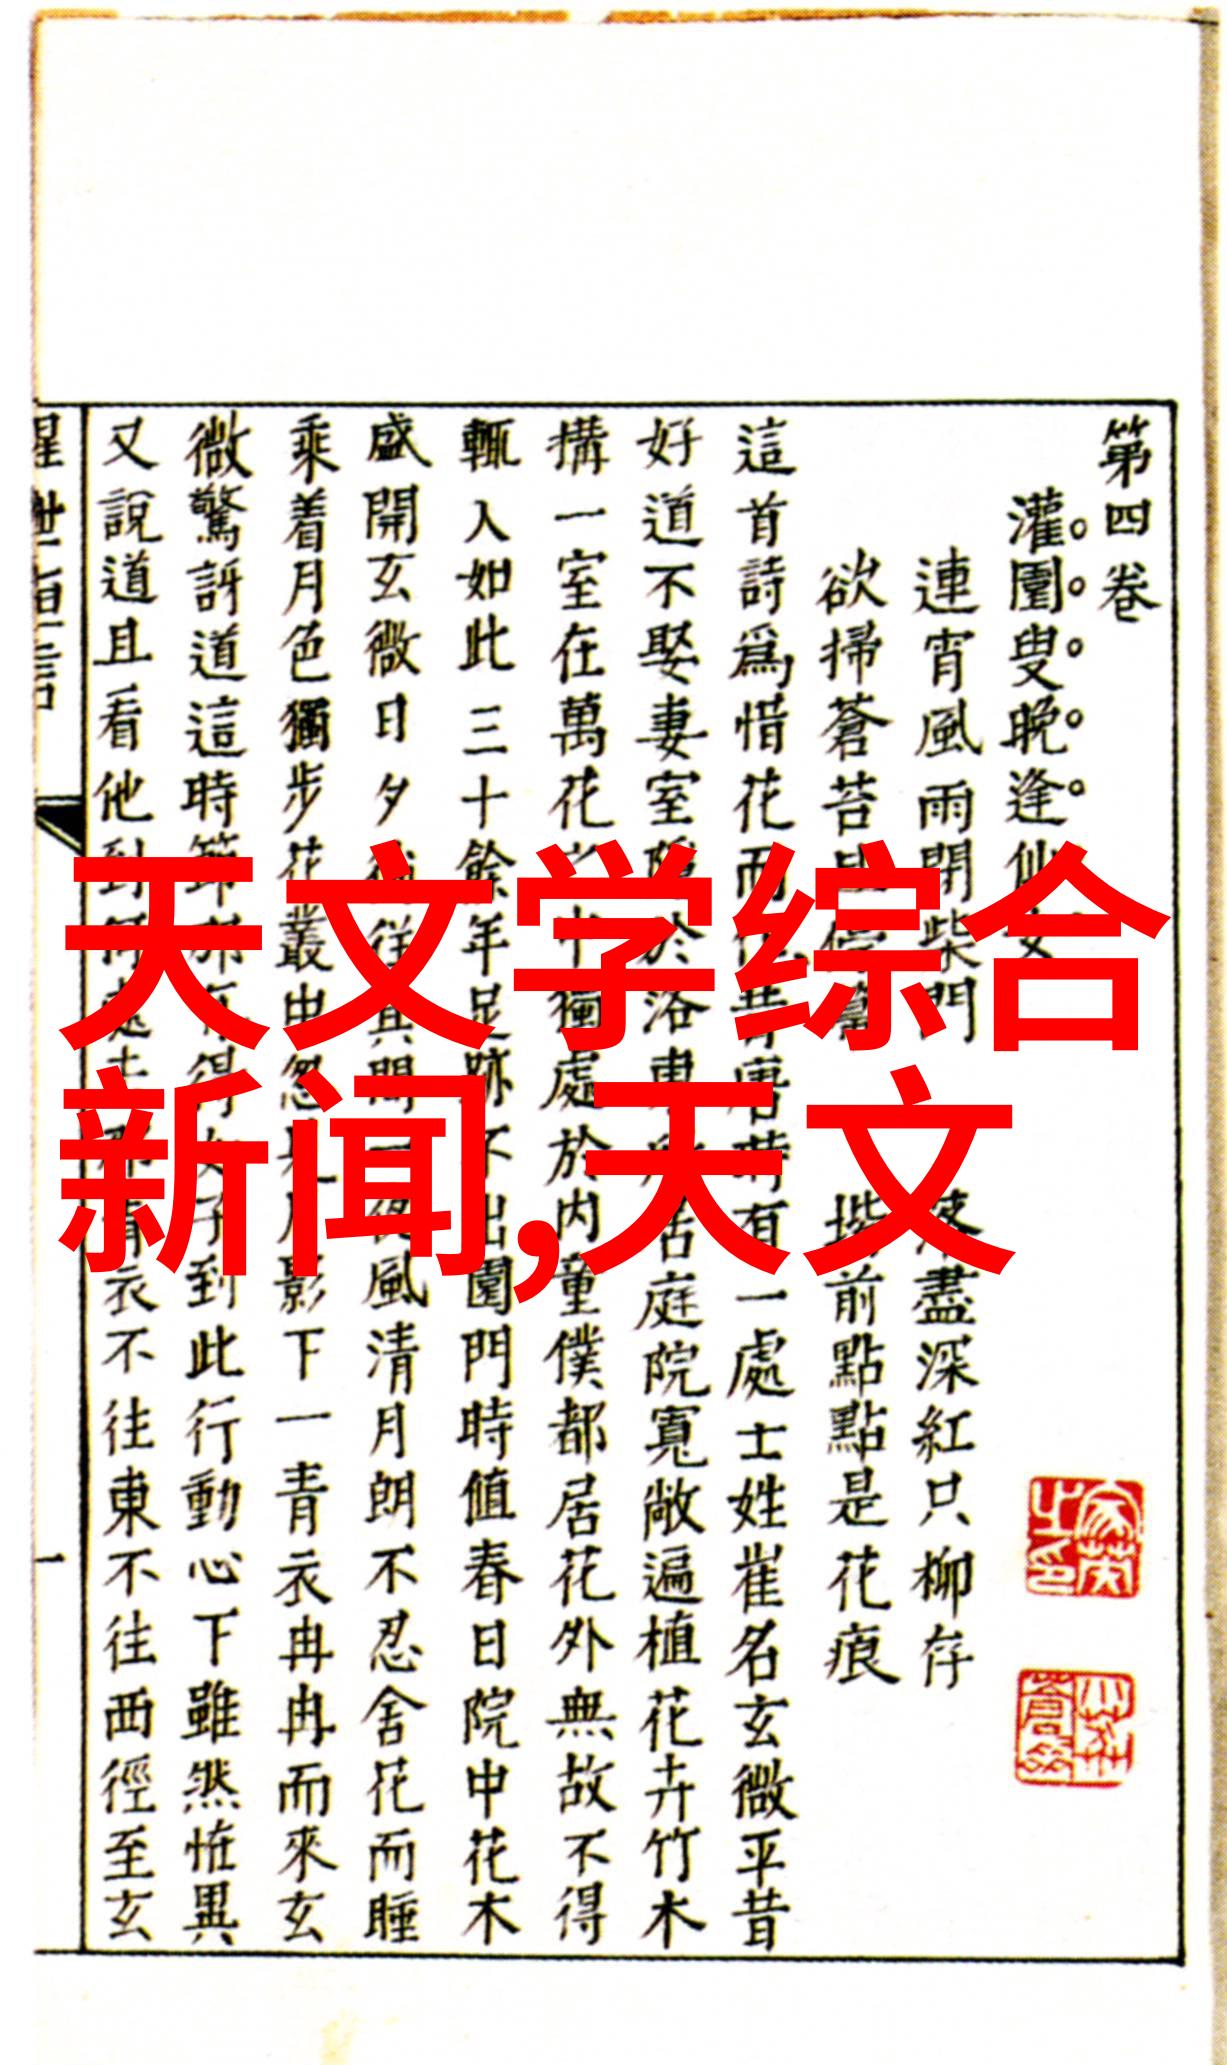 天文学综合
新闻,天文
第四卷
灌園叟晚逢仙
連宵風雨閉柴門 落盡深紅只柳存
欲掃蒼苔 堦前點點是花痕
這首詩爲惜花而 昔唐時有一處士姓崔名玄微平昔
好道不娶妻室隱於洛東 居庭院寬敞遍植花卉竹木
搆一室在萬花 中獨處於内童僕都居花外無故不得
輒入如此三十餘年足跡不出園門時值春日院中花木
盛開玄微日夕 其間一夜風清月朗不忍舍花而睡
乘着月色獨步花叢中忽見月影下一青衣冉冉而來玄
微驚訝道這時節 得女子到此行動心下雖然怪異
又說道且看他到何處去那青衣不往東不往西徑至玄